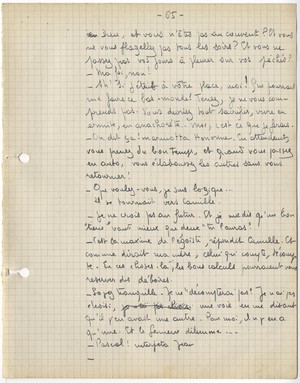 - 65 -
en Dieu, et vous n'êtes pas au couvent ? Et vous
ne vous flagellez pas tous les soirs ? Et vous ne
passez pas vos jours à pleurer sur vos péchés ?
- Ma foi, non !
- Ah ! Si j'étais à votre place, moi ! Qui pourrait
me faire ce bas-monde ! Tenez, je ne vous com-
prends pas. Vous devriez tout sacrifier, vivre en
ermite, en anachorète. Moi, c'est ce que je ferais.
- On dit ça ! marmotta. En attendant,
vous prenez du bon temps, et quand vous passez
en auto, vous éclaboussez les autres sans vous
retourner !
- Que voulez-vous, je suis logique...
Il se tournait vers Camille.
- Je ne crois pas au futur. Et je me dis qu'un bon
"tiens" vaut mieux que deux "tu l'auras".
- C'est la maxime de, répondit Camille. Et
comme dirait ma mère, celui qui compte,
-te. En ces choses-là, les bons calculs pourraient vous
réserver des déboires.
- Soyez tranquille. Je ne "décompterai pas". Je n'ai pas
choisi, une voie en me disant
qu'il y en avait une autre. Pour moi, il n'y en a
qu'une. Et le fameux dilemme...
- Pascal ! interjeta Jean
-